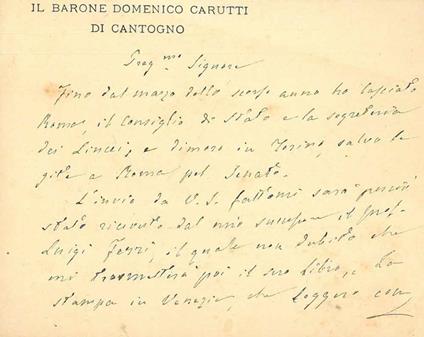 IL BARONE DOMENICO CARUTTI
DI CANTOGNO
Preg.mo Signore
Fino dal marzo dello scorso anno ho lasciato
Roma, il Consiglio di Stato e la segreteria
dei Lincei, e dimoro in Torino, salvo le
gite a Roma pel Senato.
L'invio da V. S. fattomi sarà perciò
stato ricevuto dal mio successore il Prof.
Luigi Ferri, il quale non dubito che
mi trasmetterà poi il suo Libro. La
stampa in Venezia, che leggerò con